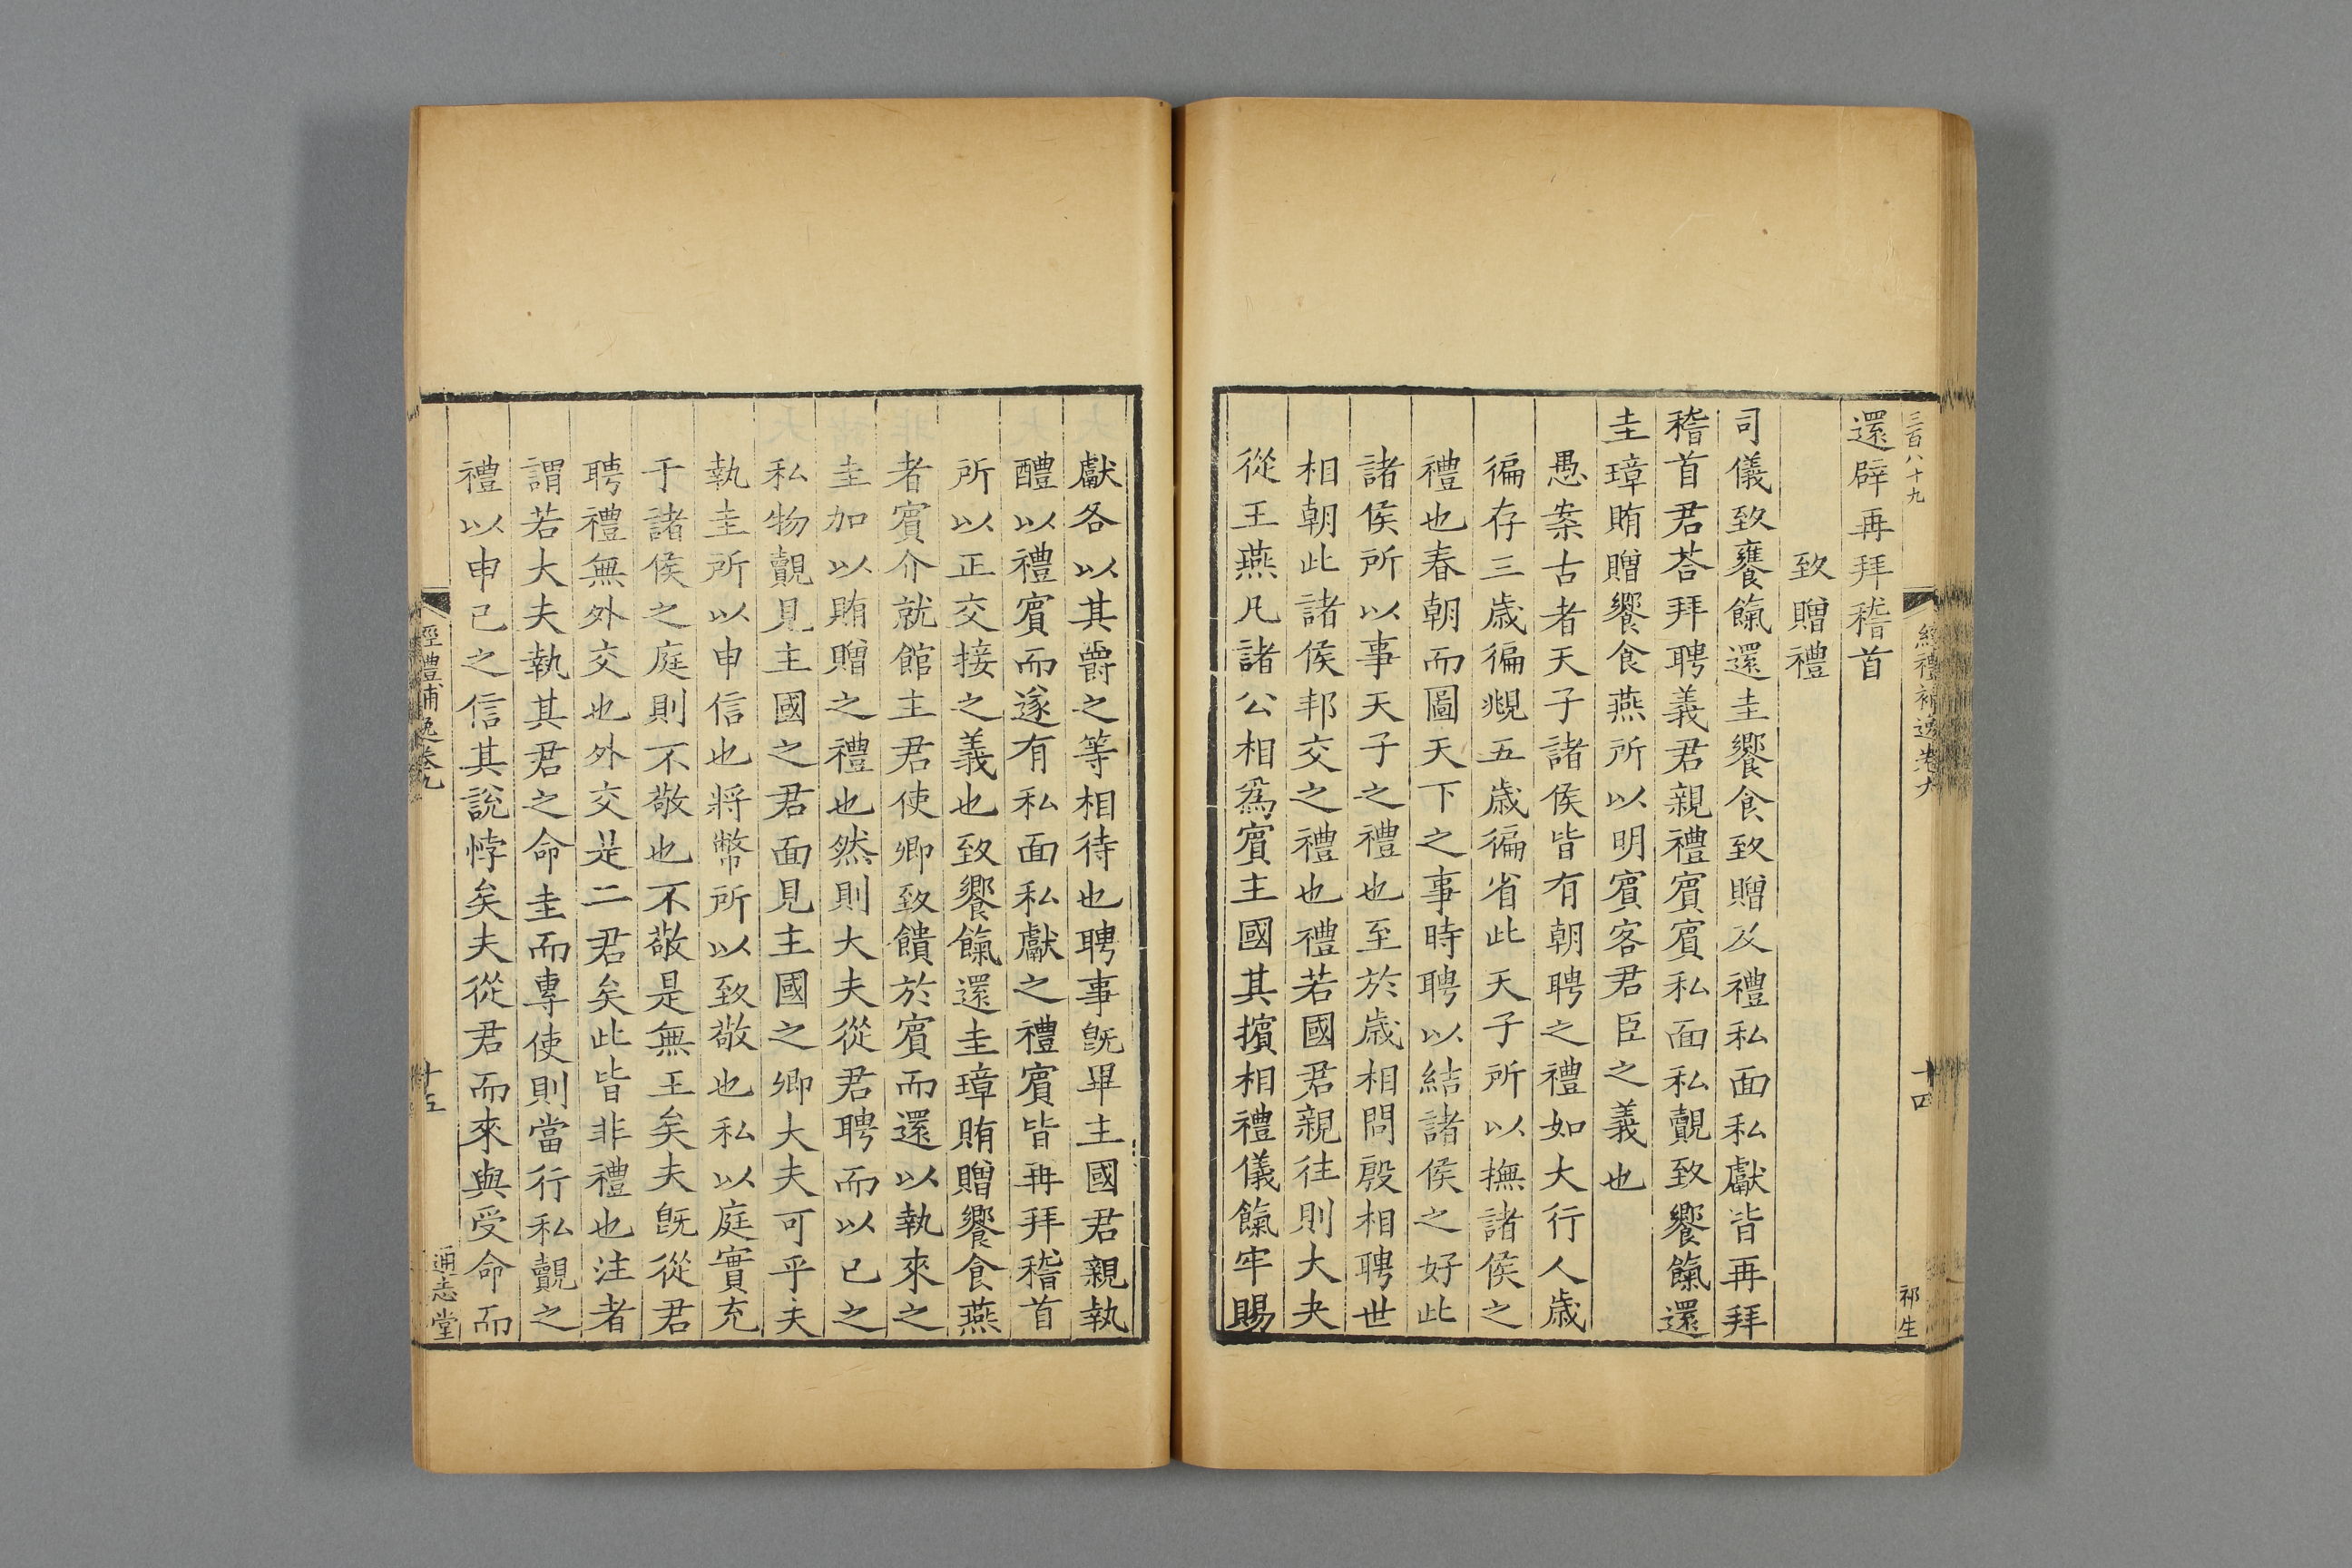 三百八十九
經禮補逸卷九
十四
祁生
還辟再拜稽首
致贈禮
司儀致饔餼還圭饗食致贈及禮私面私獻皆再拜
稽首君荅拜聘義君親禮賓賓私面私覿致饔餼還
圭璋賄贈饗食燕所以明賓客君臣之義也
愚案古者天子諸侯皆有朝聘之禮如大行人歲
徧存三歲徧覜五歲徧省此天子所以撫諸侯之
禮也春朝而圖天下之事時聘以結諸侯之好此
諸侯所以事天子之禮也至於歲相問殷相聘世
相朝此諸侯邦交之禮也禮若國君親往則大夫
從王燕凡諸公相爲賓主國其擯相禮儀餼牢賜
獻各以其爵之等相待也聘事旣畢主國君親執
醴以禮賓而遂有私面私獻之禮賓皆再拜稽首
所以正交接之義也致饗餼還圭璋賄贈饗食燕
者賓介就館主君使卿致饋於賓而還以執來之
圭加以賄贈之禮也然則大夫從君聘而以已之
私物覿見主國之君面見主國之卿大夫可乎夫
執圭所以申信也將幣所以致敬也私以庭實充
于諸侯之庭則不敬也不敬是無王矣夫旣從君
聘禮無外交也外交是二君矣此皆非禮也注者
謂若大夫執其君之命圭而專使則當行私覿之
禮以申已之信其說悖矣夫從君而來與受命而
經禮補逸卷九
十五
通志堂